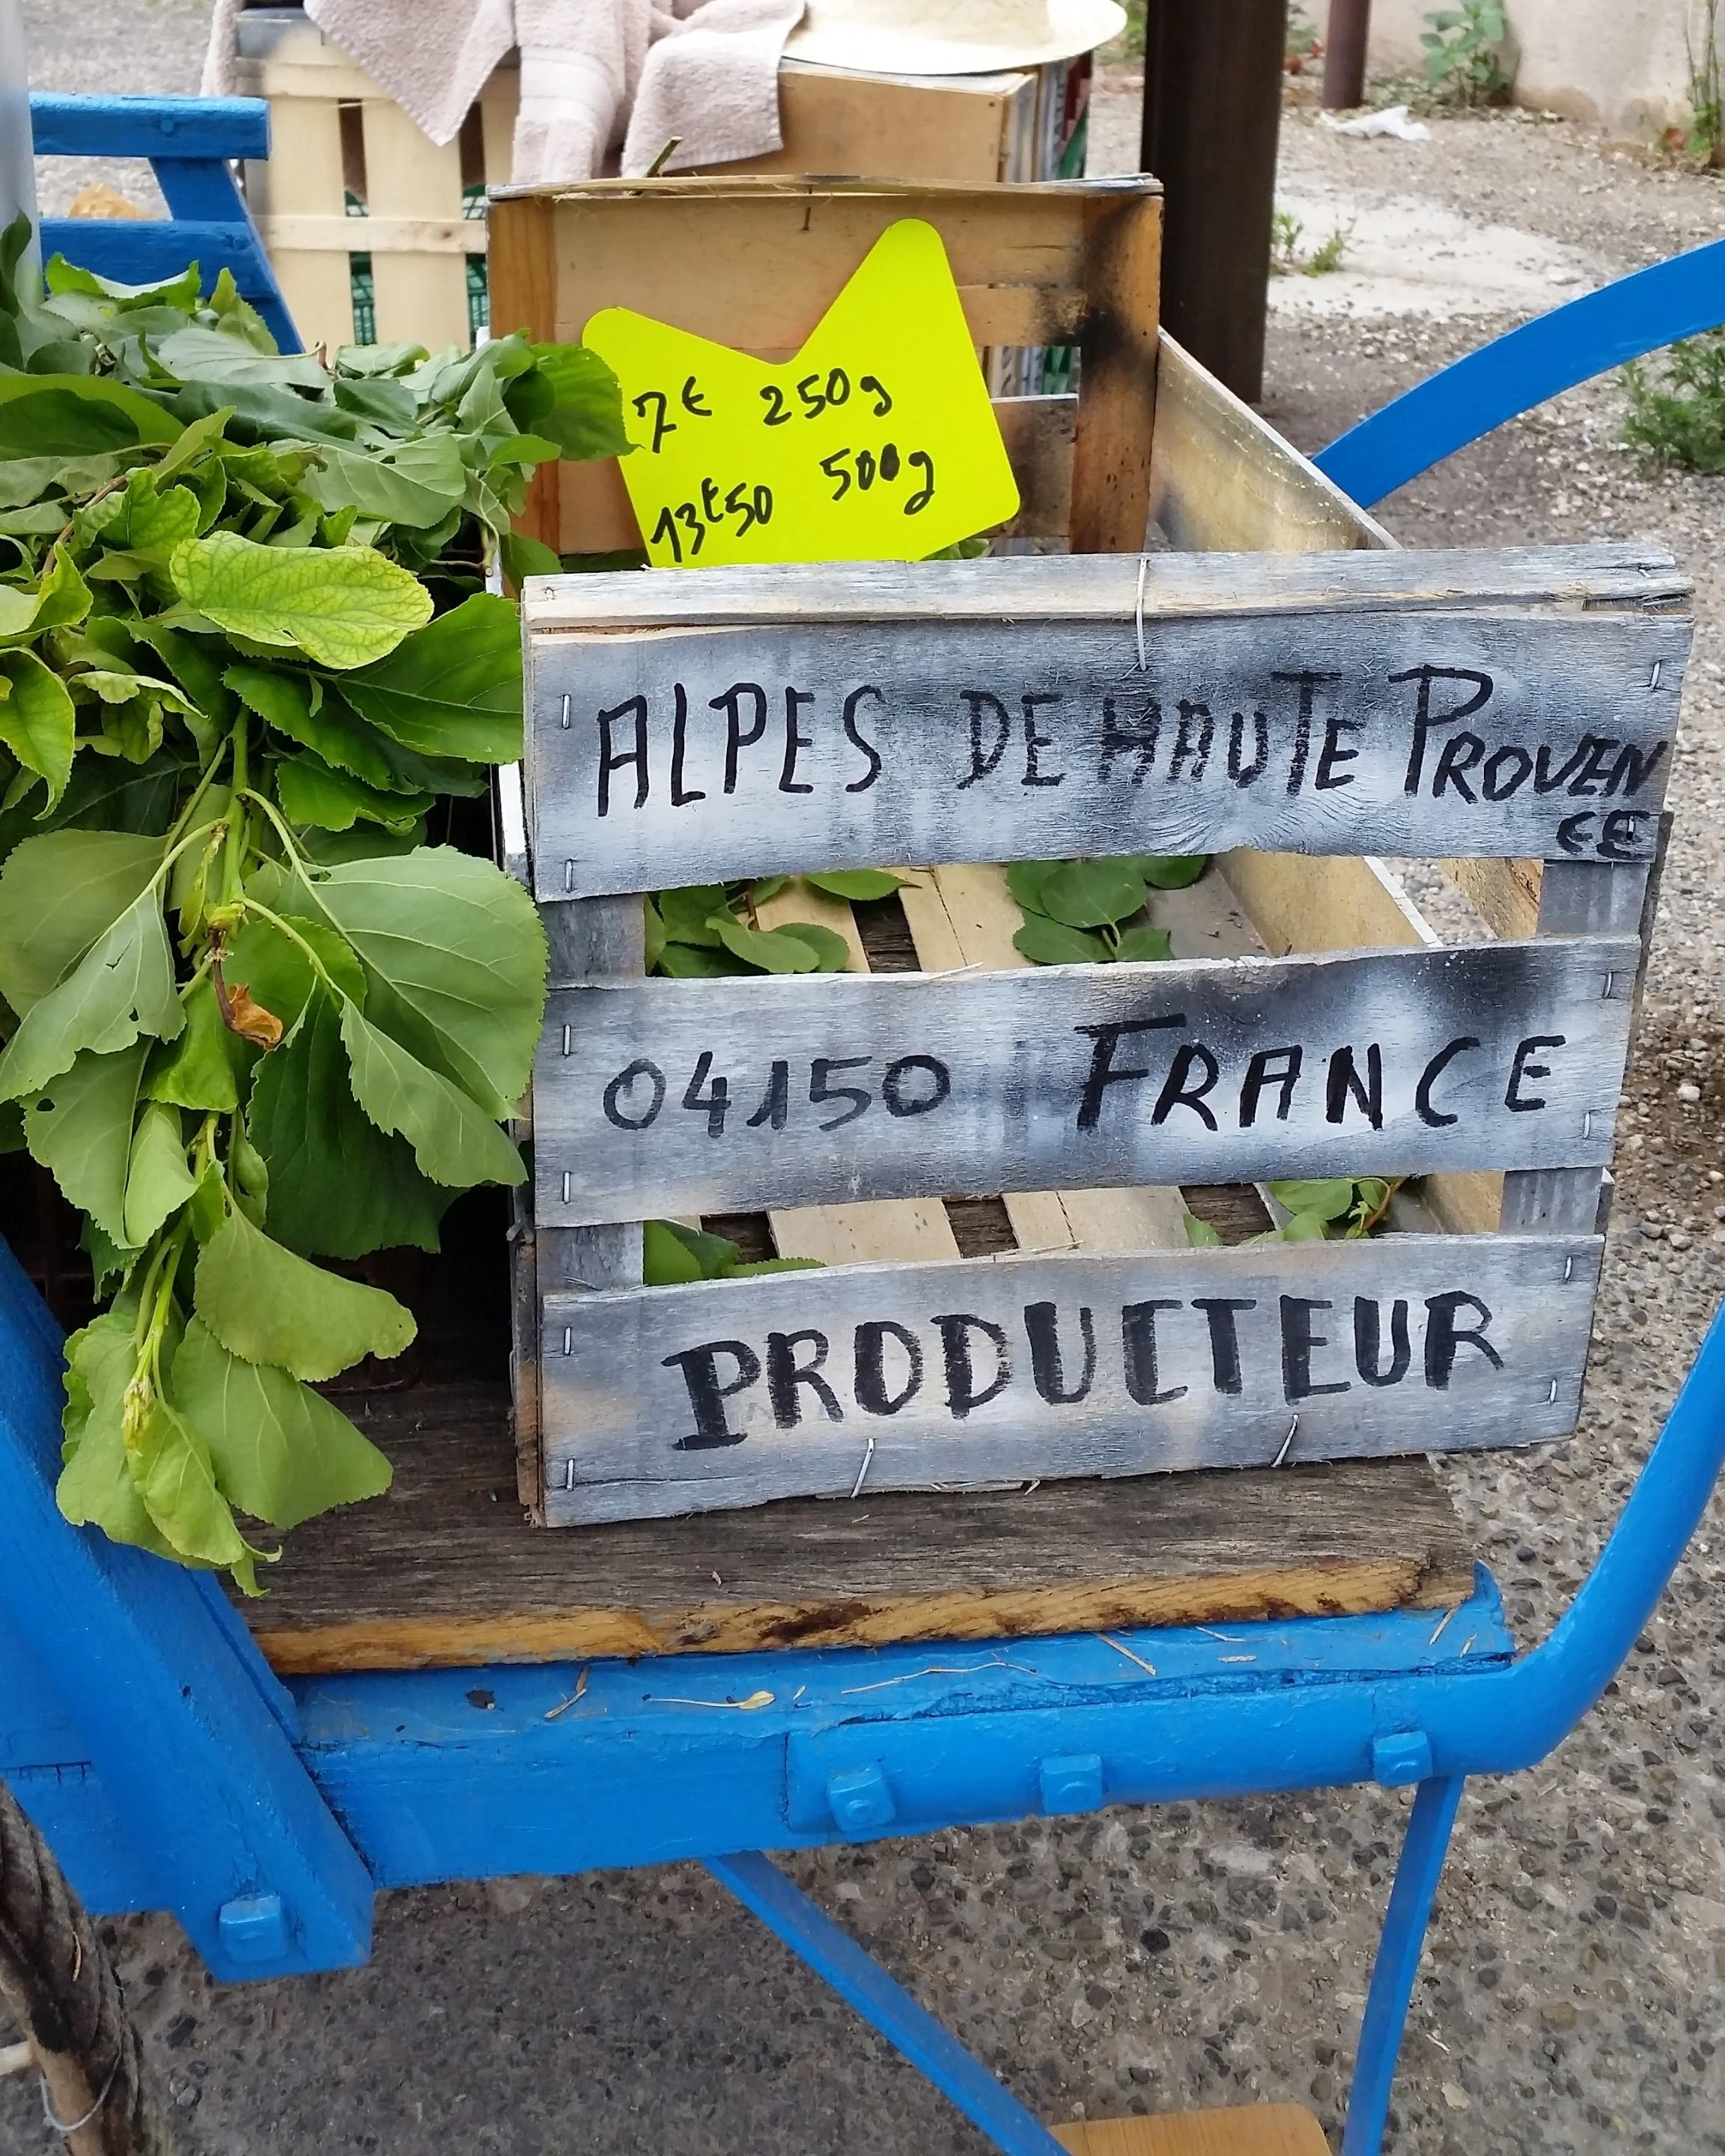 7€ 250g
13€50 500g
ALPES DE HAUTE PROVEN
CE
04150 FRANCE
PRODUCTEUR